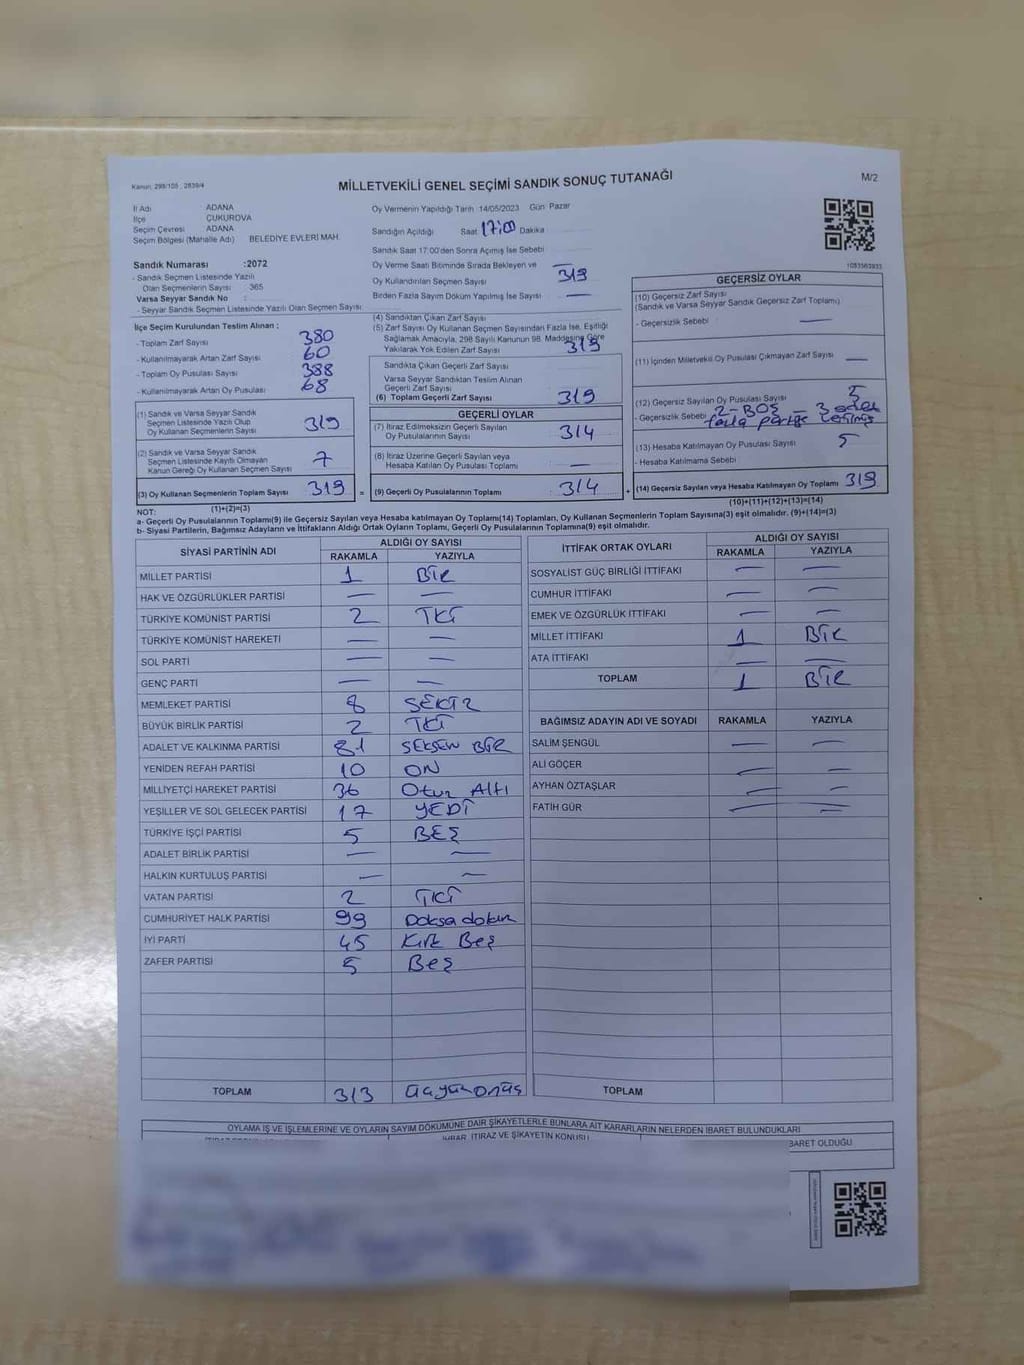 Kanun: 298/105 , 2839/4
MİLLETVEKİLİ GENEL SEÇİMİ SANDIK SONUÇ TUTANAĞI
M/2
İl Adı ADANA
İlçe ÇUKUROVA
Seçim Çevresi ADANA
Seçim Bölgesi (Mahalle Adı) BELEDİYE EVLERİ MAH.
Sandık Numarası :2072
- Sandık Seçmen Listesinde Yazılı
Olan Seçmenlerin Sayısı : 365
Varsa Seyyar Sandık No :
- Seyyar Sandık Seçmen Listesinde Yazılı Olan Seçmen Sayısı
Oy Vermenin Yapıldığı Tarih 14/05/2023 Gün Pazar
Sandığın Açıldığı Saat 17:00 Dakika
Sandık Saat 17:00'den Sonra Açılmış İse Sebebi
Oy Verme Saati Bitiminde Sırada Bekleyen ve —
Oy Kullandırılan Seçmen Sayısı 319
Birden Fazla Sayım Döküm Yapılmış İse Sayısı —
1083563933
İlçe Seçim Kurulundan Teslim Alınan ;
- Toplam Zarf Sayısı 380
- Kullanılmayarak Artan Zarf Sayısı 60
- Toplam Oy Pusulası Sayısı 388
- Kullanılmayarak Artan Oy Pusulası 68
(1) Sandık ve Varsa Seyyar Sandık
Seçmen Listesinde Yazılı Olup
Oy Kullanan Seçmenlerin Sayısı 319
(2) Sandık ve Varsa Seyyar Sandık
Seçmen Listesinde Kayıtlı Olmayan
Kanun Gereği Oy Kullanan Seçmen Sayısı 7
(3) Oy Kullanan Seçmenlerin Toplam Sayısı 319
(1)+(2)=(3)
(4) Sandıktan Çıkan Zarf Sayısı
(5) Zarf Sayısı Oy Kullanan Seçmen Sayısından Fazla İse, Eşitliği
Sağlamak Amacıyla, 298 Sayılı Kanunun 98. Maddesine Göre
Yakılarak Yok Edilen Zarf Sayısı 319
Sandıkta Çıkan Geçerli Zarf Sayısı
Varsa Seyyar Sandıktan Teslim Alınan
Geçerli Zarf Sayısı
(6) Toplam Geçerli Zarf Sayısı 319
GEÇERLİ OYLAR
(7) İtiraz Edilmeksizin Geçerli Sayılan
Oy Pusulalarının Sayısı 314
(8) İtiraz Üzerine Geçerli Sayılan veya
Hesaba Katılan Oy Pusulası Toplamı —
= (9) Geçerli Oy Pusulalarının Toplamı 314
GEÇERSİZ OYLAR
(10) Geçersiz Zarf Sayısı
(Sandık ve Varsa Seyyar Sandık Geçersiz Zarf Toplamı)
- Geçersizlik Sebebi —
(11) İçinden Milletvekili Oy Pusulası Çıkmayan Zarf Sayısı —
(12) Geçersiz Sayılan Oy Pusulası Sayısı 5
- Geçersizlik Sebebi 2-BOŞ - 3 adet
fazla partiye
(13) Hesaba Katılmayan Oy Pusulası Sayısı 5
- Hesaba Katılmama Sebebi
+ (14) Geçersiz Sayılan veya Hesaba Katılmayan Oy Toplamı 319
(10)+(11)+(12)+(13)=(14)
NOT:
a- Geçerli Oy Pusulaları Toplamı(9) ile Geçersiz Sayılan veya Hesaba Katılmayan Oy Toplamı(14) Toplamları, Oy Kullanan Seçmenlerin Toplam Sayısına(3) eşit olmalıdır. (9)+(14)=(3)
b- Siyasi Partilerin, Bağımsız Adayların ve İttifakların Aldığı Ortak Oyların Toplamı, Geçerli Oy Pusulalarının Toplamına(9) eşit olmalıdır.
SİYASİ PARTİNİN ADI ALDIĞI OY SAYISI
RAKAMLA YAZIYLA
MİLLET PARTİSİ 1 BİR
HAK VE ÖZGÜRLÜKLER PARTİSİ — —
TÜRKİYE KOMÜNİST PARTİSİ 2 İKİ
TÜRKİYE KOMÜNİST HAREKETİ — —
SOL PARTİ — —
GENÇ PARTİ — —
MEMLEKET PARTİSİ 8 SEKİZ
BÜYÜK BİRLİK PARTİSİ 2 İKİ
ADALET VE KALKINMA PARTİSİ 81 SEKSEN BİR
YENİDEN REFAH PARTİSİ 10 ON
MİLLİYETÇİ HAREKET PARTİSİ 36 Otuz Altı
YEŞİLLER VE SOL GELECEK PARTİSİ 17 YEDİ
TÜRKİYE İŞÇİ PARTİSİ 5 BEŞ
ADALET BİRLİK PARTİSİ — —
HALKIN KURTULUŞ PARTİSİ — —
VATAN PARTİSİ 2 İKİ
CUMHURİYET HALK PARTİSİ 99 Doksa dokuz
İYİ PARTİ 45 Kırk Beş
ZAFER PARTİSİ 5 Beş
TOPLAM 313 üçyüzonüç
İTTİFAK ORTAK OYLARI ALDIĞI OY SAYISI
RAKAMLA YAZIYLA
SOSYALİST GÜÇ BİRLİĞİ İTTİFAKI — —
CUMHUR İTTİFAKI — —
EMEK VE ÖZGÜRLÜK İTTİFAKI — —
MİLLET İTTİFAKI 1 BİR
ATA İTTİFAKI — —
TOPLAM 1 BİR
BAĞIMSIZ ADAYIN ADI VE SOYADI RAKAMLA YAZIYLA
SALİM ŞENGÜL — —
ALİ GÖÇER — —
AYHAN ÖZTAŞLAR — —
FATİH GÜR — —
TOPLAM
OYLAMA İŞ VE İŞLEMLERİNE VE OYLARIN SAYIM DÖKÜMÜNE DAİR ŞİKAYETLERLE BUNLARA AİT KARARLARIN NELERDEN İBARET BULUNDUKLARI
İTİRAZ VE ŞİKAYETİN KONUSU
İBARET OLDUĞU